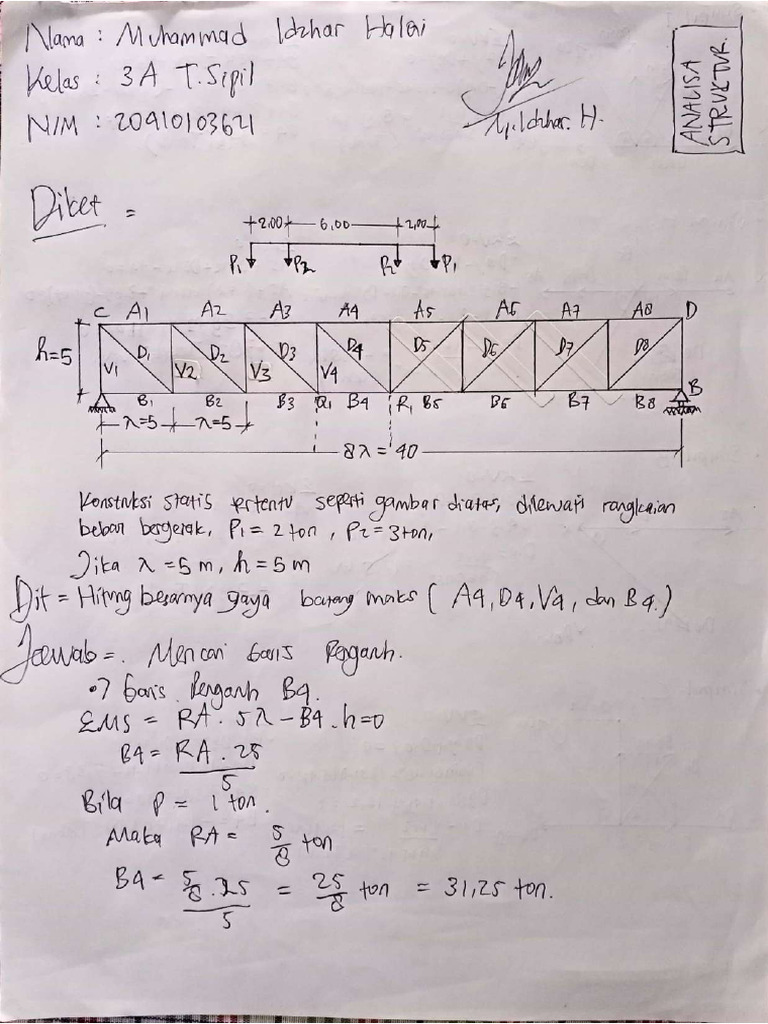 Nama : Muhammad Idzhar Haleri
Kelas : 3A T.Sipil
NIM : 20910103621
M.Idzhar. H.
ANALISA
STRUKTUR.
Diket =
2,00 6,00 2,00
P1 P2 P2 P1
C A1 A2 A3 A4 A5 A6 A7 A8 D
h=5 V1 D1 V2 D2 V3 D3 V4 D4 D5 D6 D7 D8
B1 B2 B3 Q1 B4 R1 B5 B6 B7 B8 B
λ=5 λ=5
8λ = 40
Konstruksi statis tertentu seperti gambar diatas, dilewati rangkaian
beban bergerak, P1 = 2 ton, P2 = 3 ton,
Jika λ = 5 m, h = 5 m
Dit = Hitung besarnya gaya batang maks ( A4, D4, V4, dan B4.)
Jawab =. Mencari Garis Pengaruh.
•7 Garis Pengaruh B4.
ΣMS = RA . 5λ – B4 . h=0
B4 = RA . 25
5
Bila P = 1 ton.
Maka RA = 5/8 ton
B4 = 5/8 . 25 = 25/8 ton = 31,25 ton.
5